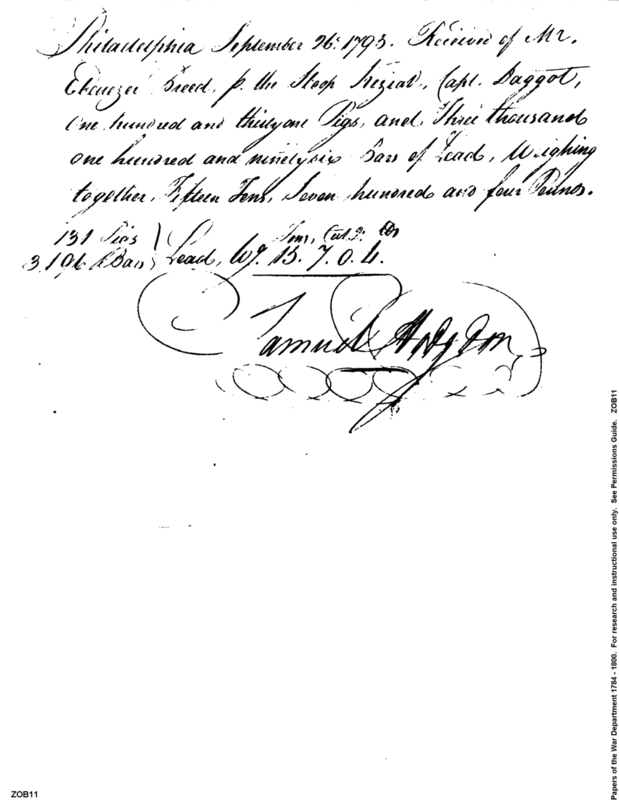 Philadelphia September 26th 1793. Received of Mr.
Ebenezer Breed, p. the Sloop Keziah, Capt. Daggot,
One hundred and thirtyone Pigs, and Three thousand
one hundred and ninetysix Bars of Lead, Weighing
together, Fifteen Tons, Seven hundred and four Pounds.
Tons, Cwt. Q. lbs
131 Pigs
3.196 Bars } Lead, Wt. 15. 7. 0. 4.
Samuel Hodgdon
Papers of the War Department 1784 - 1800. For research and instructional use only. See Permissions Guide. ZOB11
ZOB11